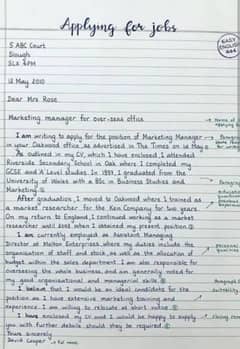 Applying for jobs
EASY ENGLISH
5 ABC Court
Slough
SL2 4PM
12 May 2010
Dear Mrs Rose
Marketing manager for over-seas office
I am writing to apply for the position of Marketing Manager
in your Oakwood office as advertised in The Times on 16 May.
As outlined in my CV, which I have enclosed I attended
Riverside Secondary School in Oak where I completed my
GCSE and A Level studies. In 1997, I graduated from the
University of Wales with a BSc in Business Studies and
Marketing.
After graduation, I moved to Oakwood where I trained as
a market researcher for the Ken Company for two years.
On my return to England, I continued working as a market
researcher until 2003 when I obtained my present position.
I am currently employed as Assistant Managing
Director at Molton Enterprises, where my duties include the
organisation of staff and stock, as well as the allocation of
budget within the sales department. I am also responsible for
overseeing the whole business, and am generally noted for
my good organisational and managerial skills.
I believe that I would be an ideal candidate for the
position as I have extensive marketing training and
experience. I am willing to relocate at short notice.
I have enclosed my CV and I would be happy to supply
you with further details should they be required.
Yours sincerely
David Cooper → Full name